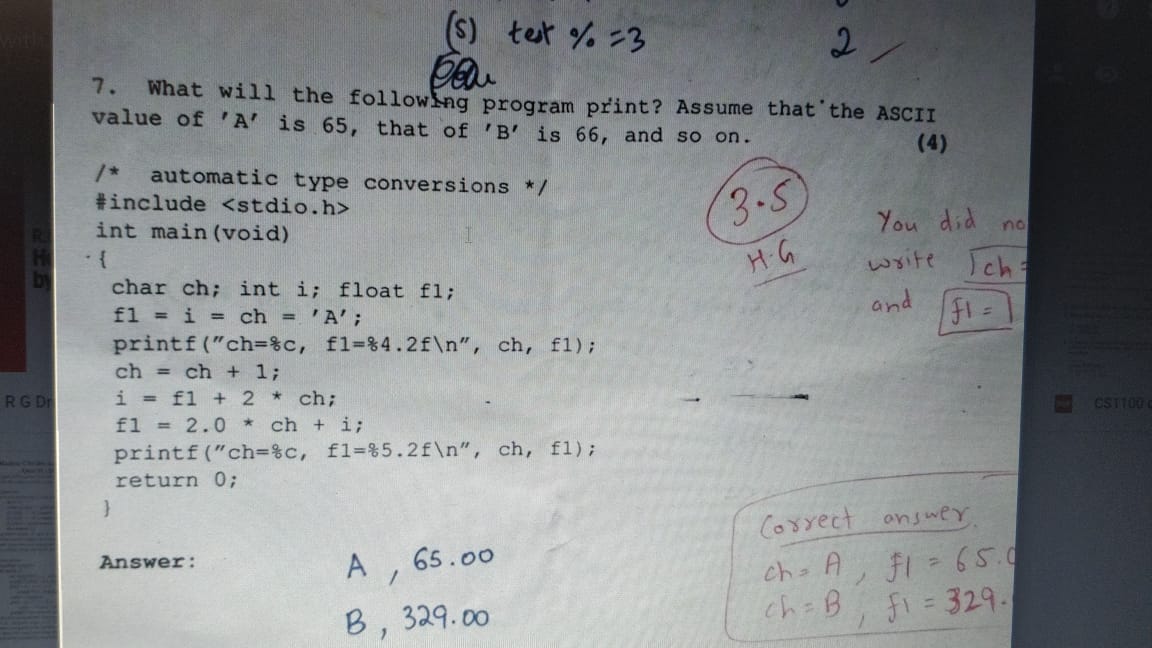 (s) test % =3
2
7. What will the following program print? Assume that the ASCII
value of 'A' is 65, that of 'B' is 66, and so on.
(4)
/* automatic type conversions */
#include <stdio.h>
int main(void)
{
char ch; int i; float f1;
f1 = i = ch = 'A';
printf("ch=%c, f1=%4.2f\n", ch, f1);
ch = ch + 1;
i = f1 + 2 * ch;
f1 = 2.0 * ch + i;
printf("ch=%c, f1=%5.2f\n", ch, f1);
return 0;
}
3.5
H.G
You did no
write ch=
and f1=
Answer:
A , 65.00
B , 329.00
Correct answer
ch= A , f1 = 65.0
ch= B , f1 = 329.
R G Dr
CST100
by